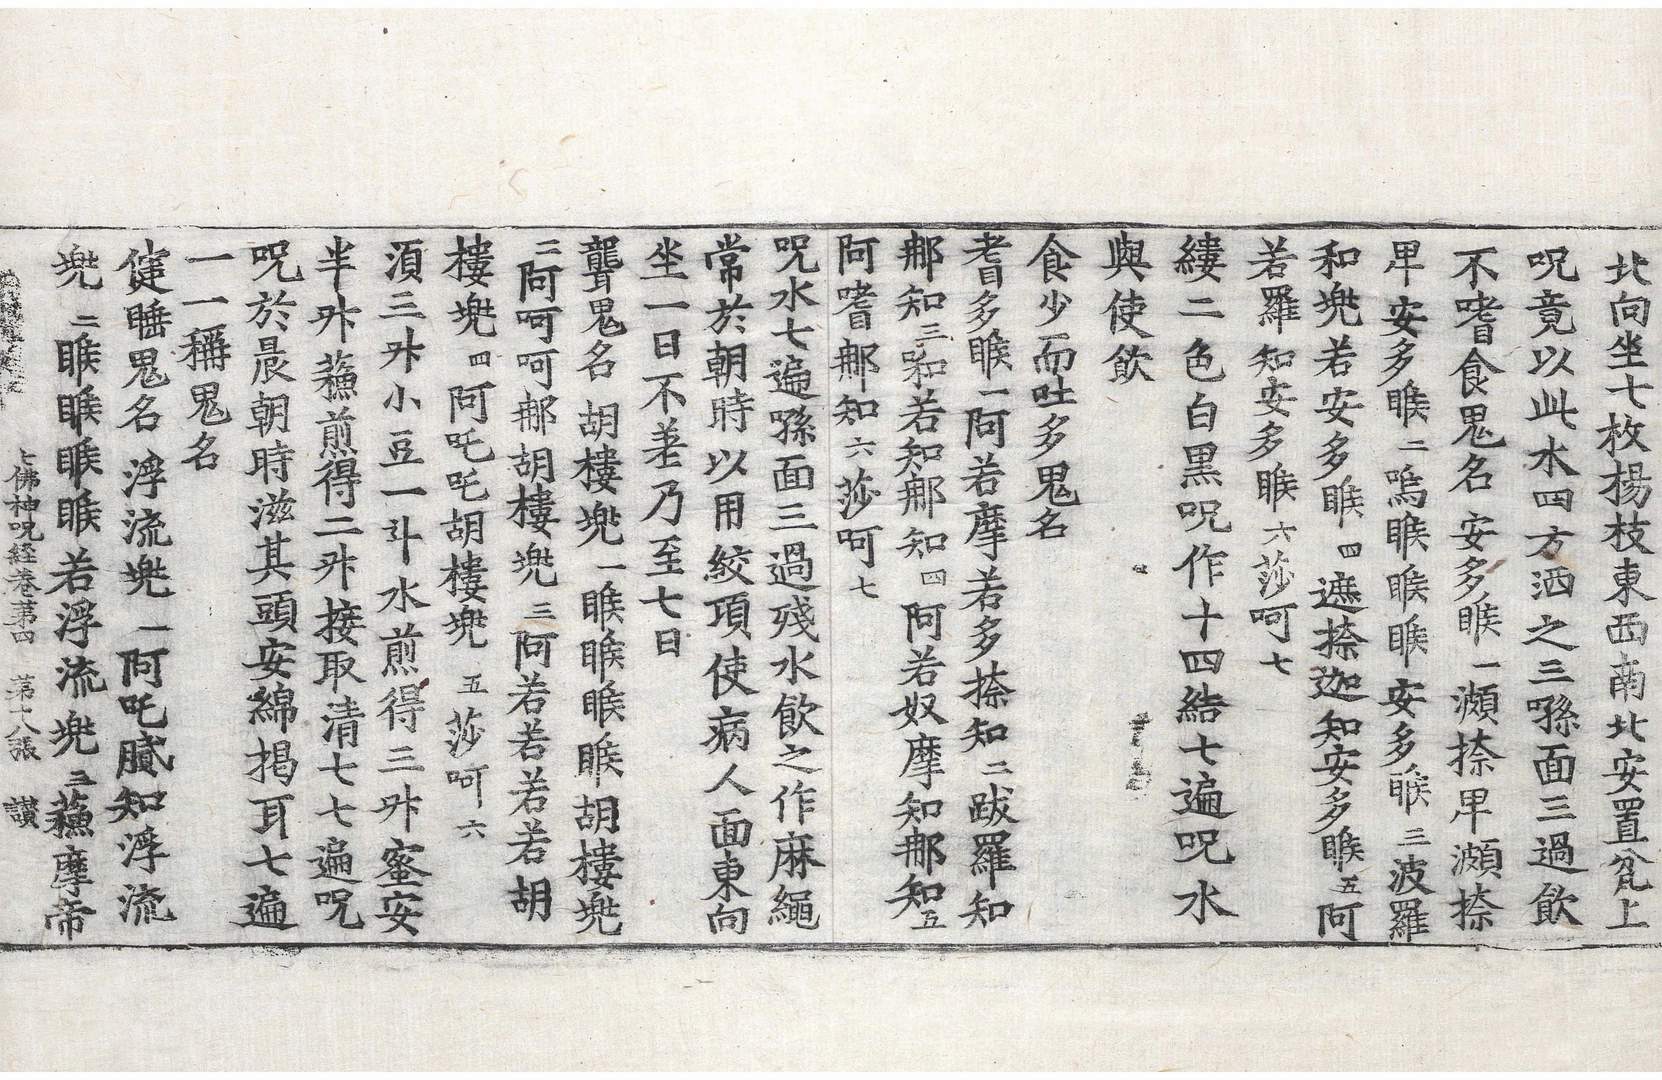 北向坐七枚楊枝東西南北安置瓮上
呪竟以此水四方洒之三噀面三過飲
不嗜食鬼名 安多睺一瀕捺卑瀕捺
卑安多睺二嗚睺睺睺安多睺三波羅
和兠若安多睺四遮捺迦知安多睺五阿
若羅知安多睺六莎呵七
縷二色白黒呪作十四結七遍呪水
與使飲
食少而吐多鬼名
耆多睺一阿若摩若多捺知二跋羅知
那知三和若知那知四阿若奴摩知那知五
阿嗜那知六莎呵七
呪水七遍噀面三過殘水飲之作麻繩
常於朝時以用絞項使病人面東向
坐一日不差乃至七日
聾鬼名 胡樓兠一睺睺睺睺胡樓兠
二阿呵呵那胡樓兠三阿若若若若胡
樓兠四阿吒吒胡樓兠五莎呵六
湏三升小豆一斗水煎得三升蜜安
半升蘓煎得二升接取清七七遍呪
呪於晨朝時滋其頭安綿揭耳七遍
一一稱鬼名
健睡鬼名 浮流兠一阿吒膩知浮流
兠二睺睺睺睺若浮流兠三蘓摩帝
七佛神呪経巻第四 第十八張 讃